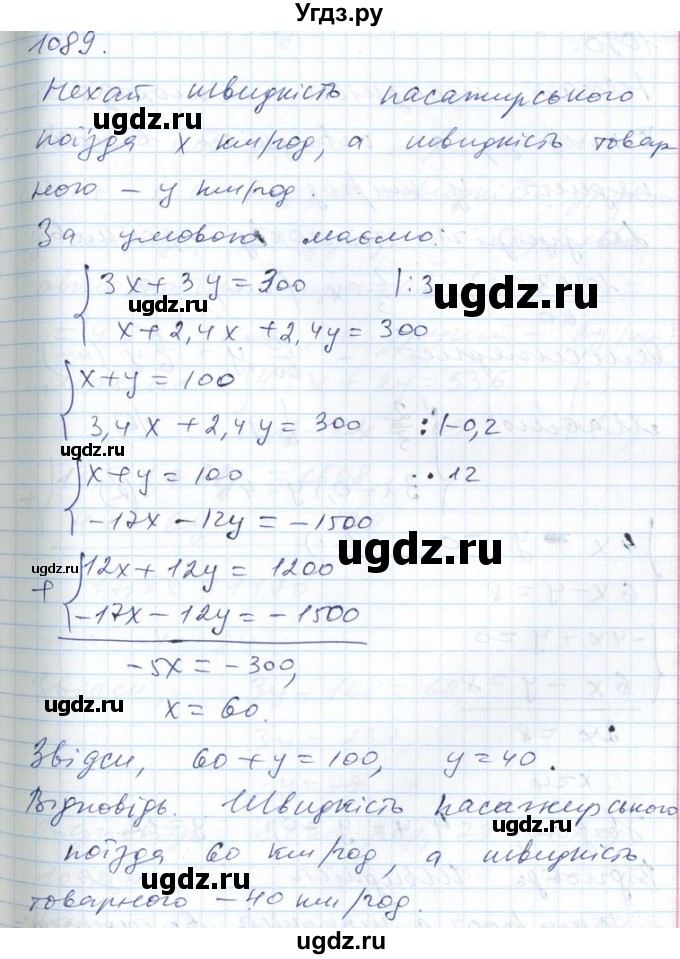 Угдз.ру
1089.
Нехай швидкість пасажирського
ugdz.ru
поїзда x км/год, а швидкість товар
ного – y км/год.
За умовою маємо:
3x + 3y = 300 |:3
ugdz.ru
ugdz.ru
x + 2,4x + 2,4y = 300
x + y = 100
3,4x + 2,4y = 300 :(-0,2
x + y = 100 · 12
-17x - 12y = -1500
ugdz.ru
ugdz.ru
+ 12x + 12y = 1200
-17x - 12y = -1500
-5x = -300,
ugdz.ru
x = 60.
Звідси, 60 + y = 100, y = 40.
Відповідь. Швидкість пасажирського
ugdz.ru
поїзда 60 км/год, а швидкість
ugdz.ru
товарного – 40 км/год.
ugdz.ru